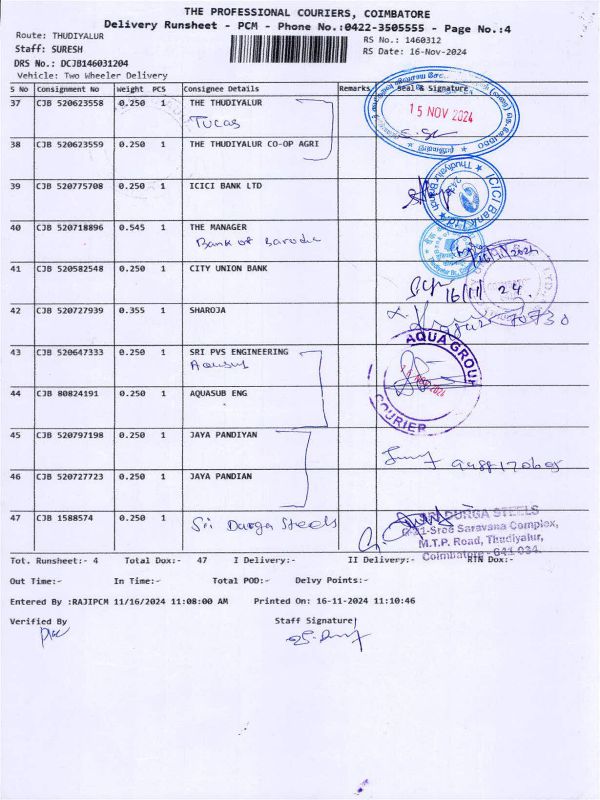 THE PROFESSIONAL COURIERS, COIMBATORE
Delivery Runsheet - PCM - Phone No.:0422-3505555 - Page No.:4
Route: THUDIYALUR
RS No.: 1460312
Staff: SURESH
RS Date: 16-Nov-2024
DRS No.: DCJB146031204
Vehicle: Two Wheeler Delivery
S No Consignment No Weight PCS Consignee Details Remarks Seal & Signature
37 CJB 520623558 0.250 1 THE THUDIYALUR
Tucas
15 NOV 2024
38 CJB 520623559 0.250 1 THE THUDIYALUR CO-OP AGRI
39 CJB 520775708 0.250 1 ICICI BANK LTD
ICICI Bank Ltd
Thudiyalur Branch
40 CJB 520718896 0.545 1 THE MANAGER
Bank of Baroda
16/11/2024
41 CJB 520582548 0.250 1 CITY UNION BANK
16/11/24
42 CJB 520727939 0.355 1 SHAROJA
43 CJB 520647333 0.250 1 SRI PVS ENGINEERING
Aquasub
AQUA GROUP
COURIER
44 CJB 80824191 0.250 1 AQUASUB ENG
45 CJB 520797198 0.250 1 JAYA PANDIYAN
46 CJB 520727723 0.250 1 JAYA PANDIAN
47 CJB 1588574 0.250 1 Sri Durga Steels
SRI DURGA STEELS
G-21-Sree Saravana Complex,
M.T.P. Road, Thudiyalur,
Coimbatore - 641 034.
Tot. Runsheet:- 4 Total Dox:- 47 I Delivery:- II Delivery:- RTN Dox:-
Out Time:- In Time:- Total POD:- Delvy Points:-
Entered By :RAJIPCM 11/16/2024 11:08:00 AM Printed On: 16-11-2024 11:10:46
Verified By Staff Signature